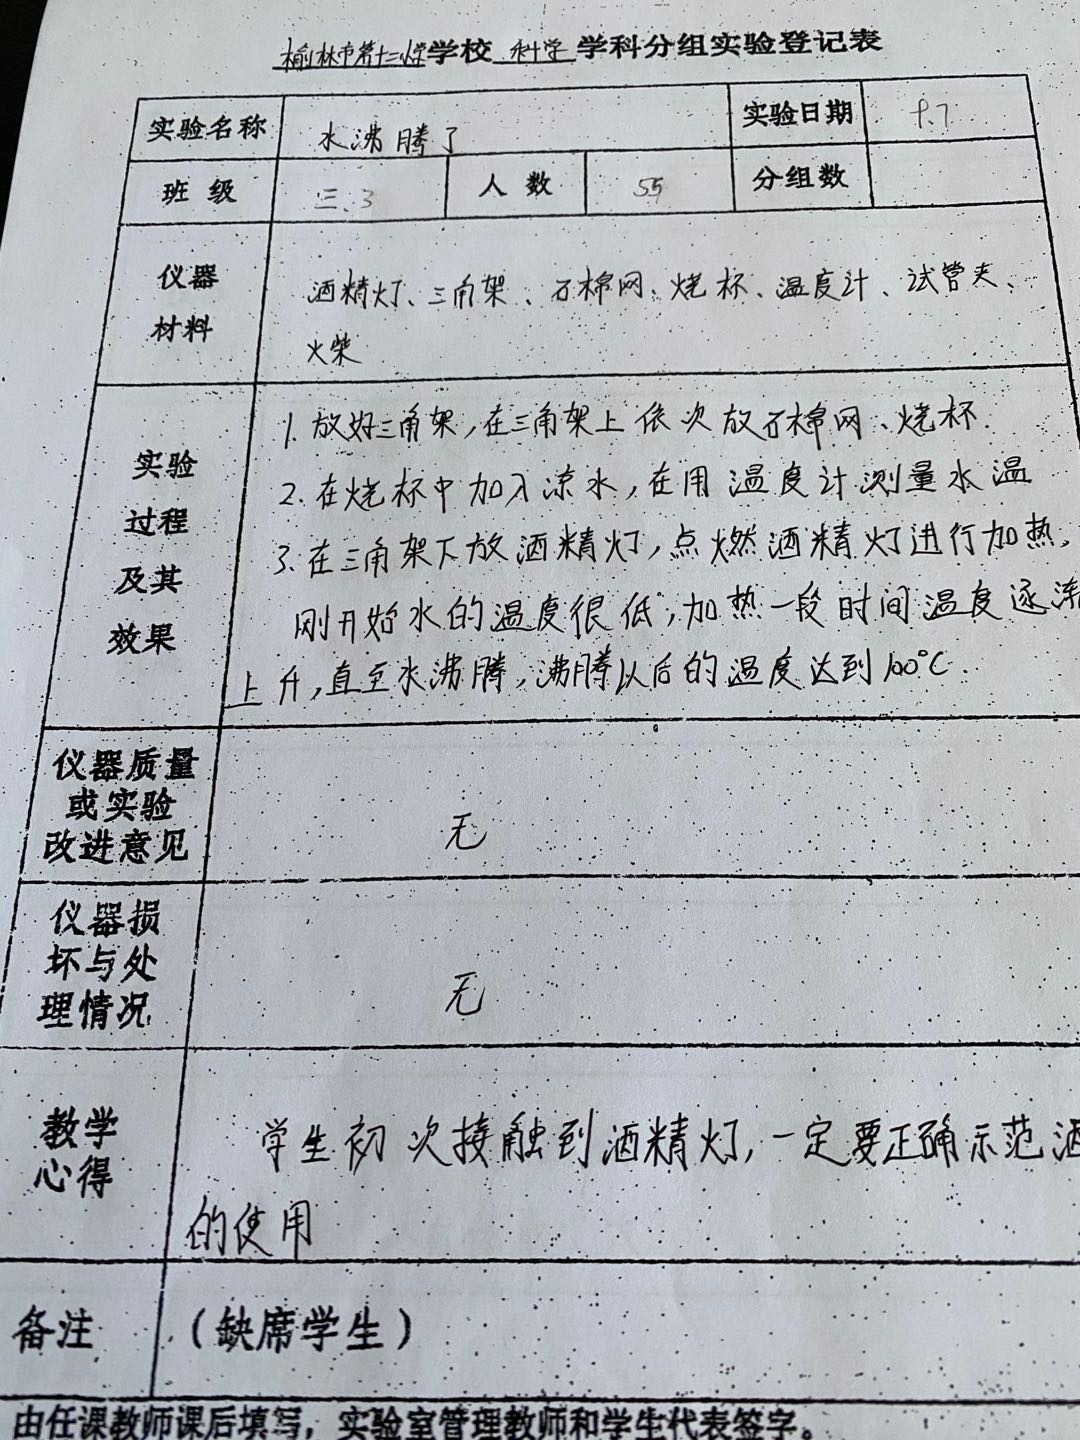 榆林市第十二小学学校 科学 学科分组实验登记表
实验名称 水沸腾了 实验日期 9.7
班级 三.3 人数 55 分组数
仪器
材料
酒精灯、三角架、石棉网、烧杯、温度计、试管夹、
火柴
实验
过程
及其
效果
1.放好三角架,在三角架上依次放石棉网、烧杯.
2.在烧杯中加入凉水,在用温度计测量水温
3.在三角架下放酒精灯,点燃酒精灯进行加热,
刚开始水的温度很低,加热一段时间温度逐渐
上升,直至水沸腾,沸腾以后的温度达到100°C.
仪器质量
或实验
改进意见
无
仪器损
坏与处
理情况
无
教学
心得
学生初次接触到酒精灯,一定要正确示范酒
的使用
备注 (缺席学生)
由任课教师课后填写,实验室管理教师和学生代表签字。